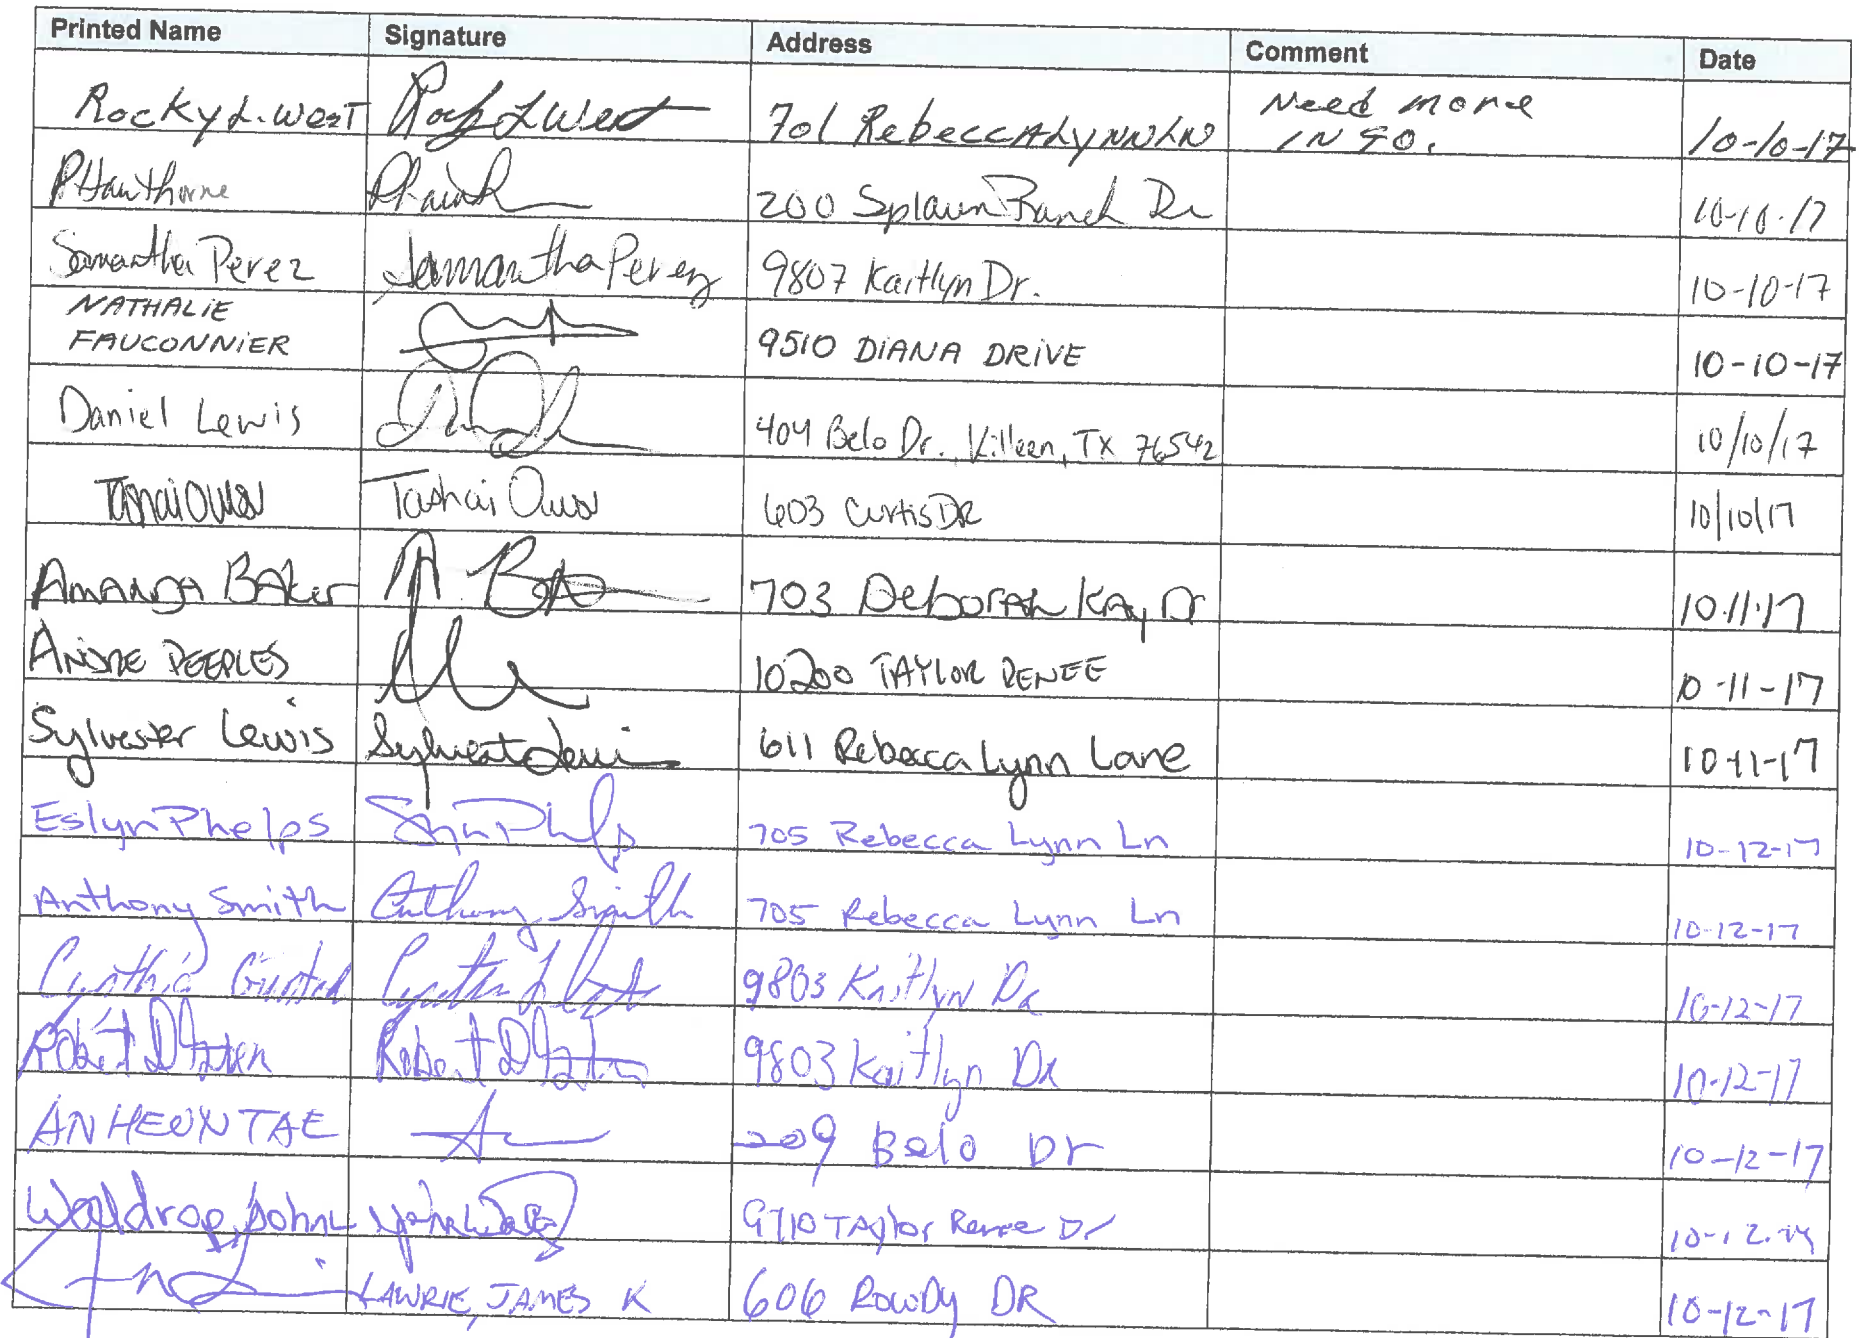 Printed Name Signature Address Comment Date
Rocky L. West Rocky L West 701 Rebecca Lynn Ln Need more 10-10-17
INFO.
P Hawthorne 200 Splawn Ranch Dr 10-10-17
Samantha Perez Samantha Perez 9807 Kaitlyn Dr. 10-10-17
NATHALIE
FAUCONNIER 9510 DIANA DRIVE 10-10-17
Daniel Lewis 404 Belo Dr., Killeen, TX 76542 10/10/17
Tashai Tashai 603 Curtis DR 10/10/17
AMANDA BAKer A 703 DeborAh KAy Dr 10.11.17
ANDRE PEEPLES 10200 TAYLOR RENEE 10-11-17
Sylvester Lewis Sylvester Lewis 611 Rebecca Lynn Lane 10-11-17
Eslyn Phelps 705 Rebecca Lynn Ln 10-12-17
Anthony Smith Anthony Smith 705 Rebecca Lynn Ln 10-12-17
Cynthia Cynthia L 9803 Kaitlyn Dr 10-12-17
Robert D Robert D 9803 Kaitlyn Dr 10-12-17
AN HEUN TAE 209 Belo Dr 10-12-17
Waldrop, John L 9710 TAylor Renee Dr
LAWRIE, JAMES K 606 RowDy DR 10-12-17